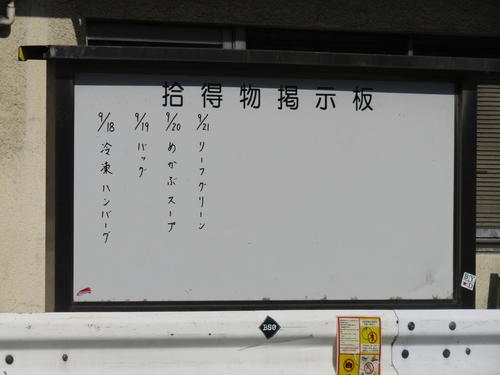 拾得物掲示板
9/18 冷凍ハンバーグ
9/19 バッグ
9/20 めかぶスープ
9/21 リーフグリーン
B50